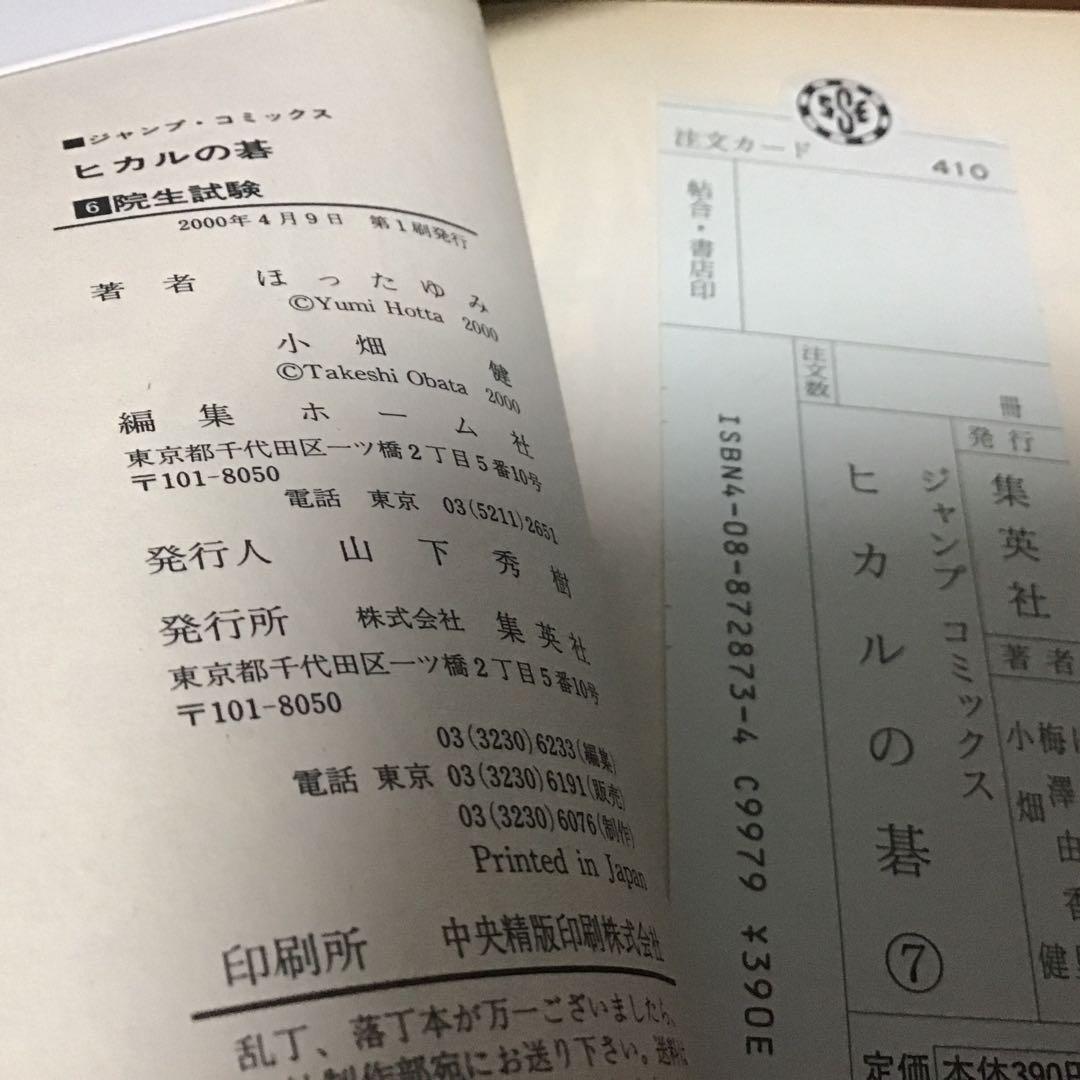 ■ジャンプ・コミックス
ヒカルの碁
6 院生試験
2000年4月9日 第1刷発行
著者 ほったゆみ
©Yumi Hotta 2000
小畑 健
©Takeshi Obata 2000
編集 ホーム社
東京都千代田区一ツ橋2丁目5番10号
〒101-8050
電話 東京 03(5211)2651
発行人 山下秀樹
発行所 株式会社 集英社
東京都千代田区一ツ橋2丁目5番10号
〒101-8050
03(3230)6233(編集)
電話 東京 03(3230)6191(販売)
03(3230)6076(制作)
Printed in Japan
印刷所 中央精版印刷株式会社
乱丁、落丁本が万一ございましたら、
制作部宛にお送り下さい。送料は
SSE
注文カード
410
帖合・書店印
注文数
冊
発行
集英社
著者
梅澤由香
小畑 健
ジャンプ コミックス
ヒカルの碁 ⑦
ISBN4-08-872873-4 C9979 ¥390E
定価 本体390円